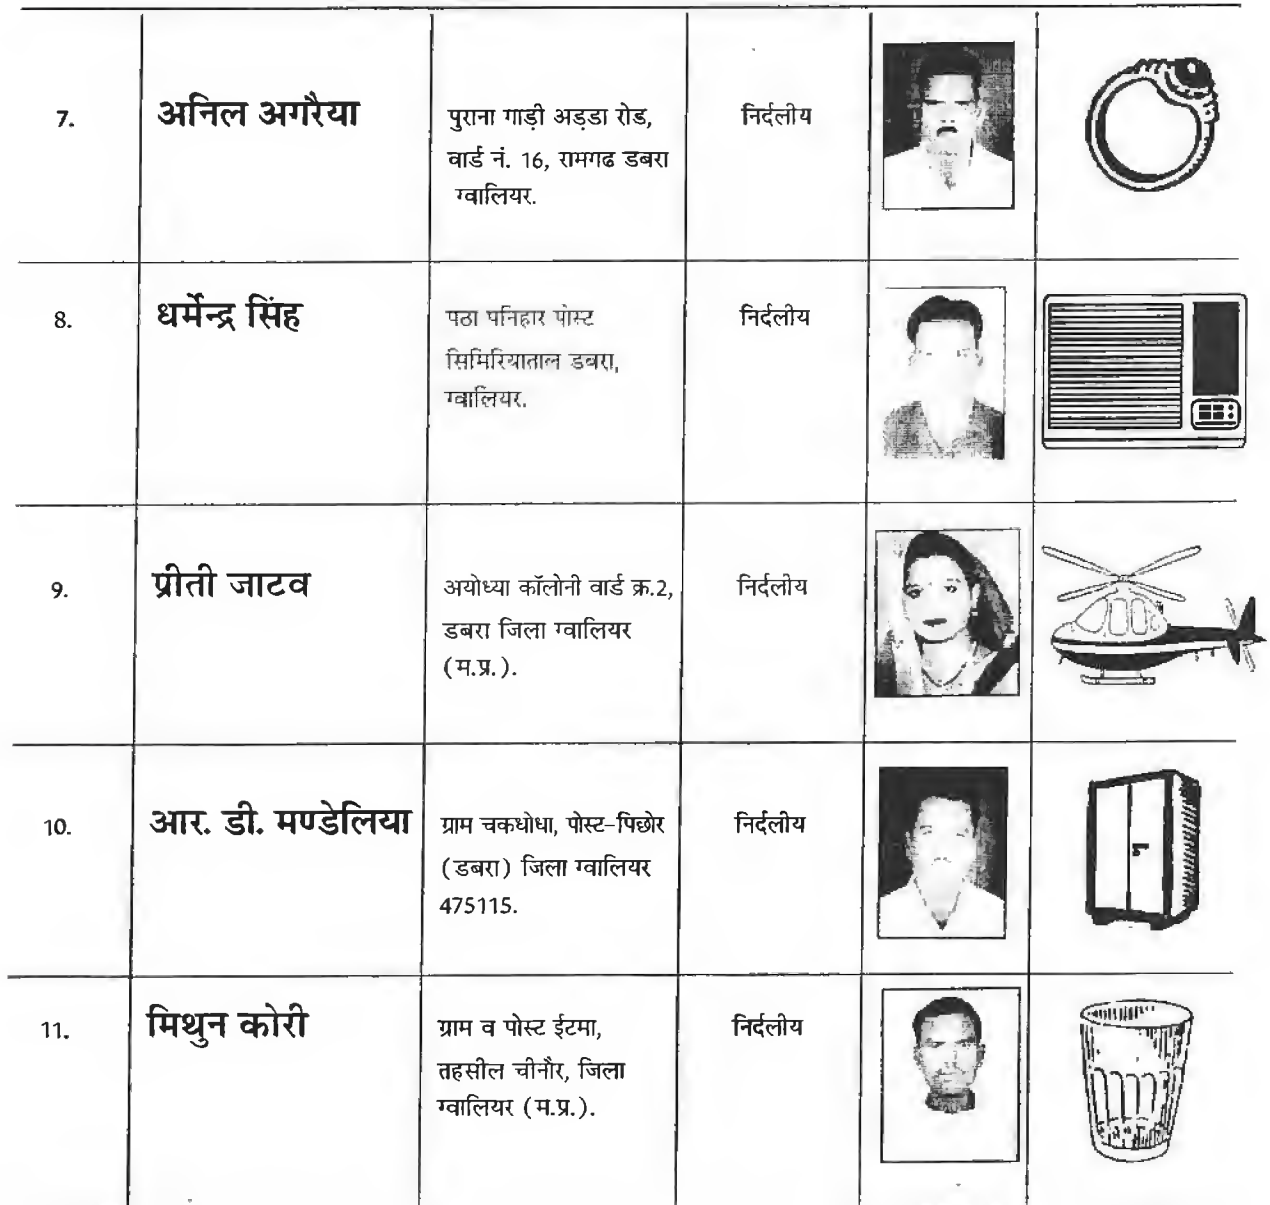 7.
अनिल अगरैया
पुराना गाड़ी अड्डा रोड,
वार्ड नं. 16, रामगढ डबरा
ग्वालियर.
निर्दलीय
8.
धर्मेन्द्र सिंह
पठा पनिहार पोस्ट
सिमिरियाताल डबरा,
ग्वालियर.
निर्दलीय
9.
प्रीती जाटव
अयोध्या कॉलोनी वार्ड क्र.2,
डबरा जिला ग्वालियर
(म.प्र.).
निर्दलीय
10.
आर. डी. मण्डेलिया
ग्राम चकधोधा, पोस्ट-पिछोर
(डबरा) जिला ग्वालियर
475115.
निर्दलीय
11.
मिथुन कोरी
ग्राम व पोस्ट ईटमा,
तहसील चीनौर, जिला
ग्वालियर (म.प्र.).
निर्दलीय